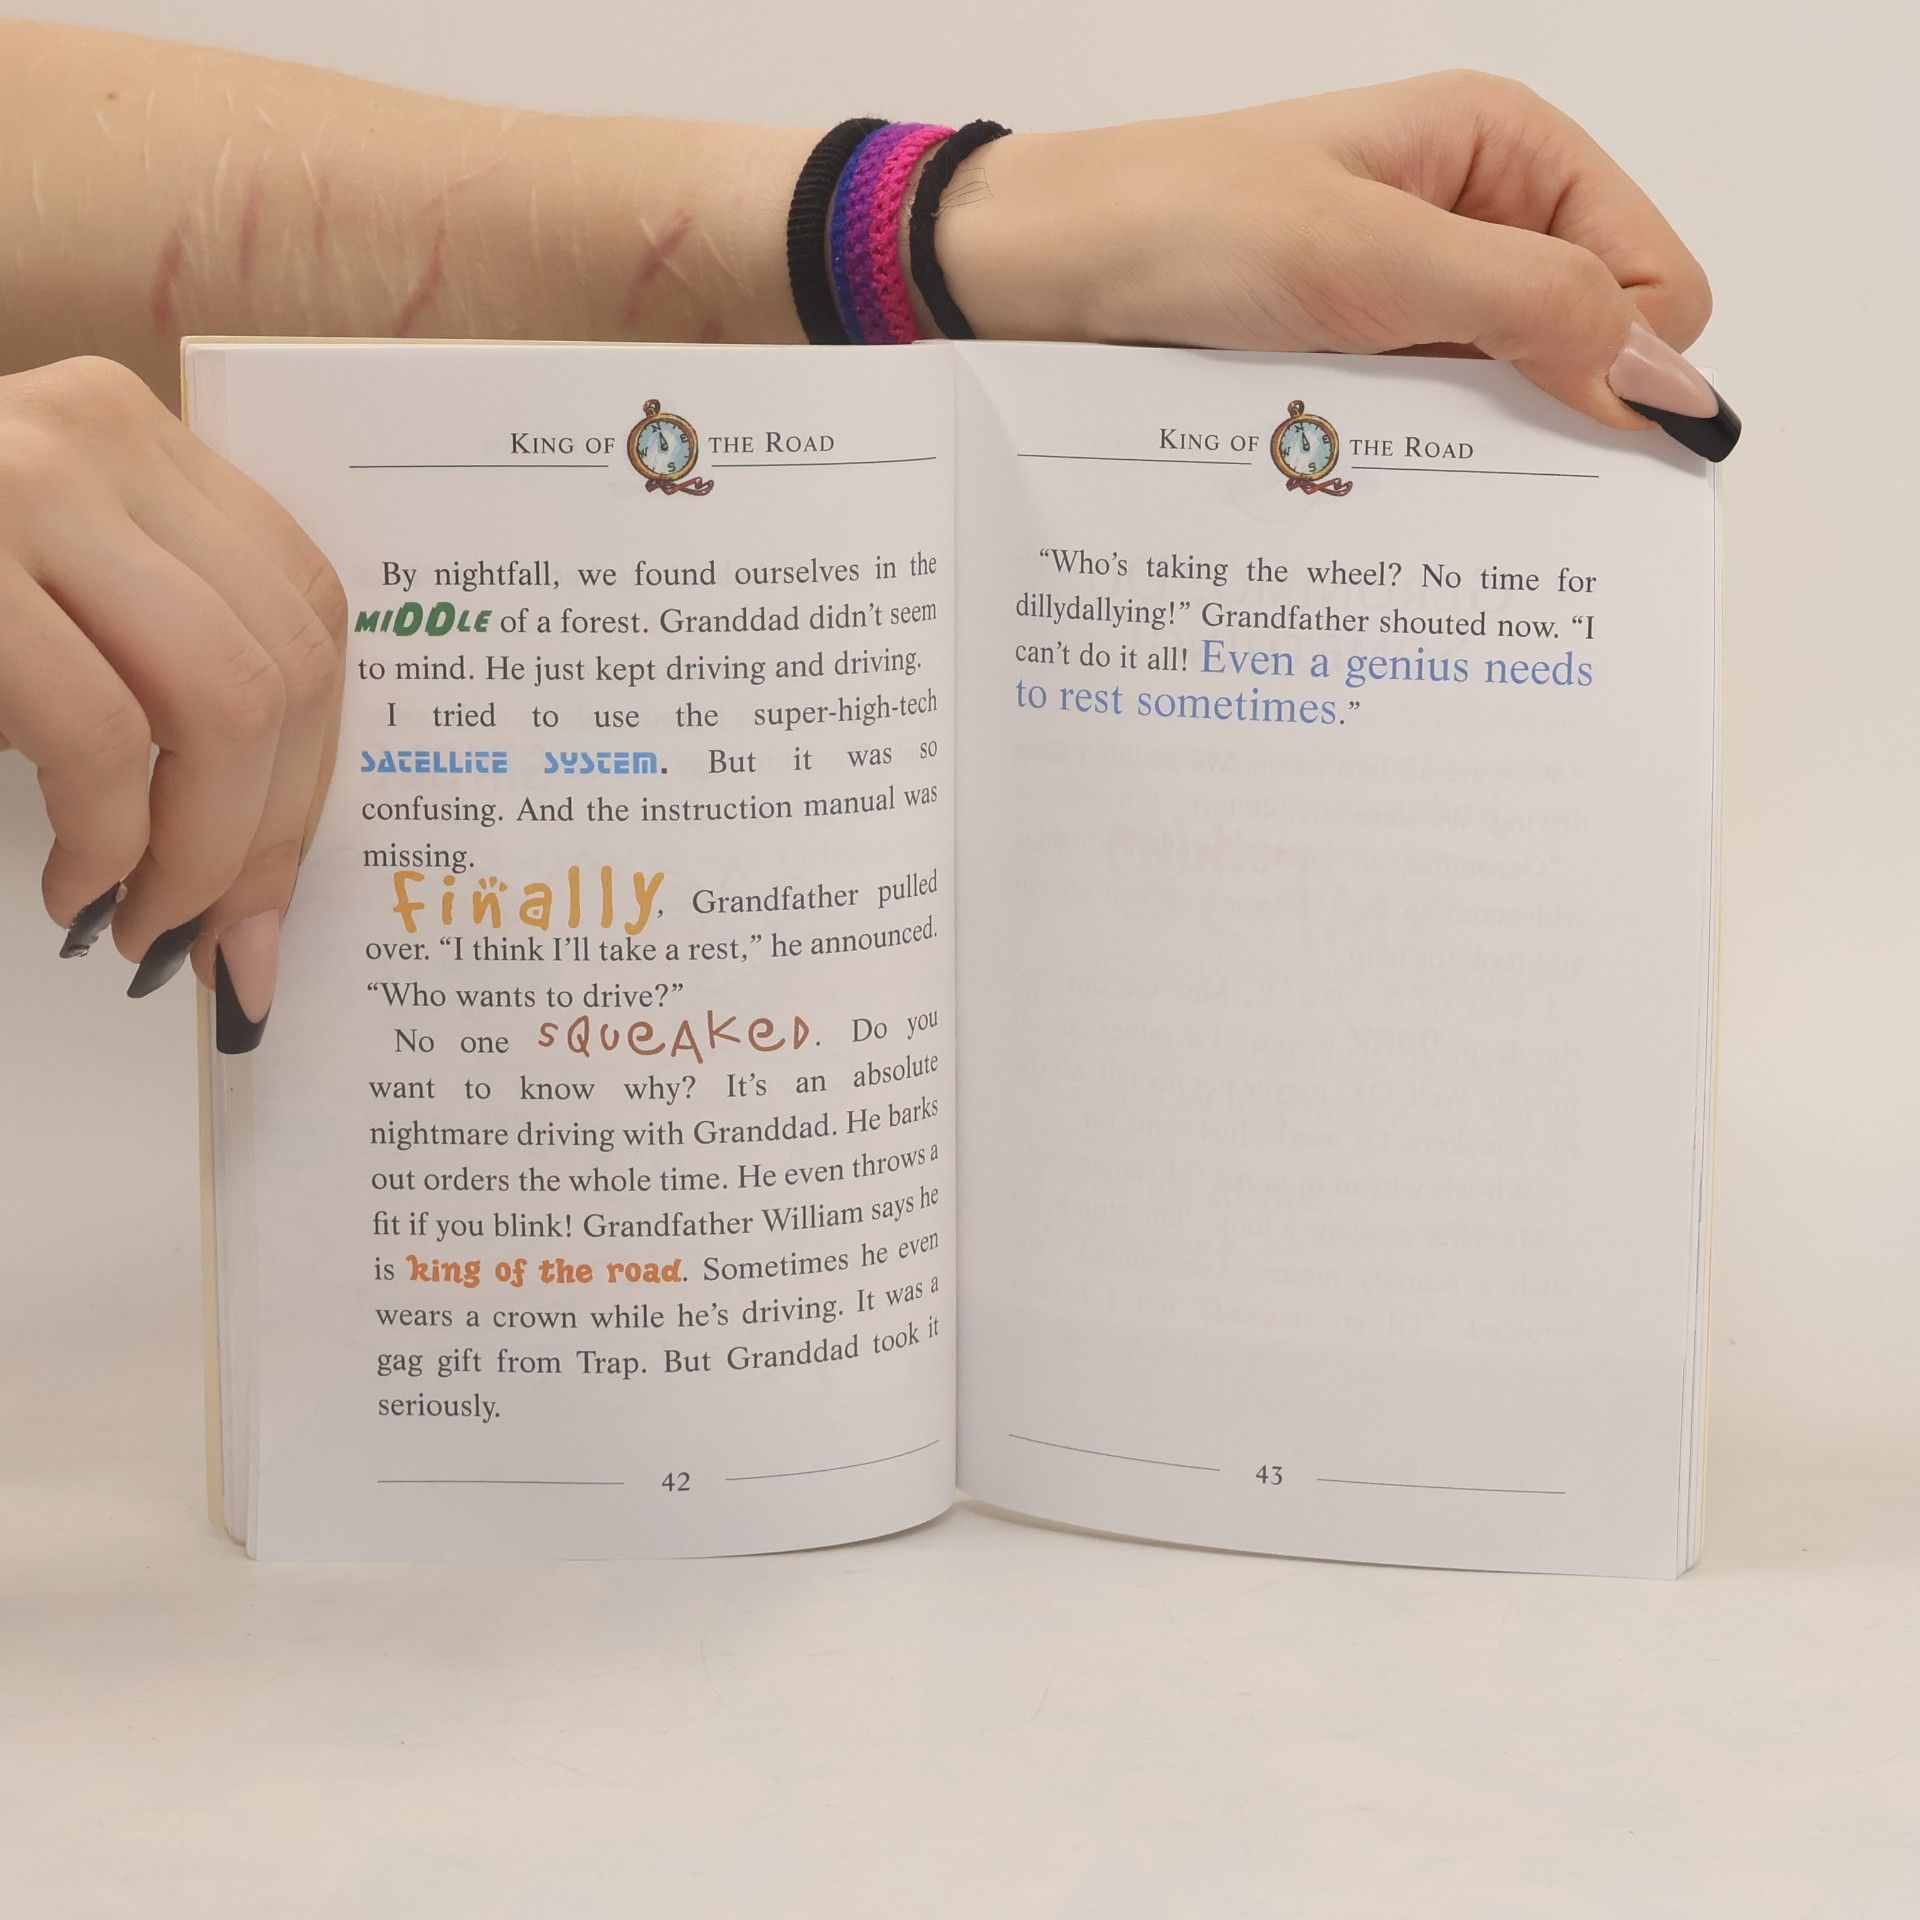 KING OF THE ROAD
By nightfall, we found ourselves in the
MIDDLE of a forest. Granddad didn't seem
to mind. He just kept driving and driving.
I tried to use the super-high-tech
SATELLITE SYSTEM. But it was so
confusing. And the instruction manual was
missing.
Finally, Grandfather pulled
over. “I think I’ll take a rest,” he announced.
“Who wants to drive?”
No one SQUEAKED. Do you
want to know why? It’s an absolute
nightmare driving with Granddad. He barks
out orders the whole time. He even throws a
fit if you blink! Grandfather William says he
is king of the road. Sometimes he even
wears a crown while he’s driving. It was a
gag gift from Trap. But Granddad took it
seriously.
42
KING OF THE ROAD
“Who’s taking the wheel? No time for
dillydallying!” Grandfather shouted now. “I
can’t do it all! Even a genius needs
to rest sometimes.”
43